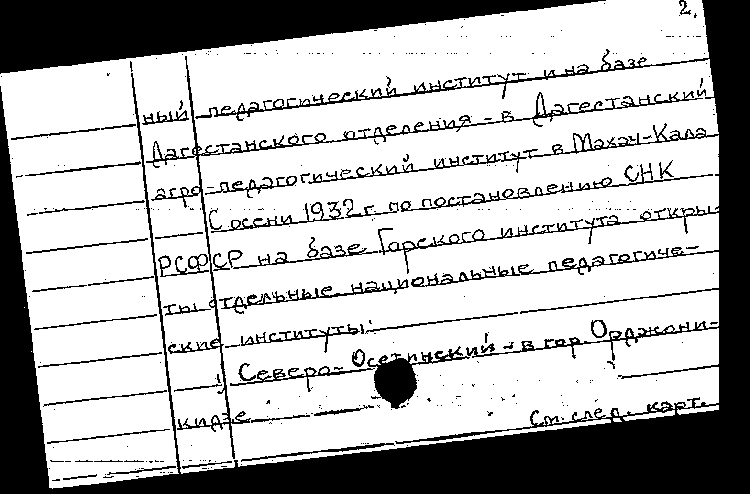 2.
ный педагогический институт и на базе
Дагестанского отделения - в Дагестанский
агро-педагогический институт в Махач-Кала
С осени 1932 г. по постановлению СНК
РСФСР на базе Горского института откры-
ты отдельные национальные педагогиче-
ские институты:
1) Северо-Осетинский - в гор. Орджони-
кидзе
См. след. карт.